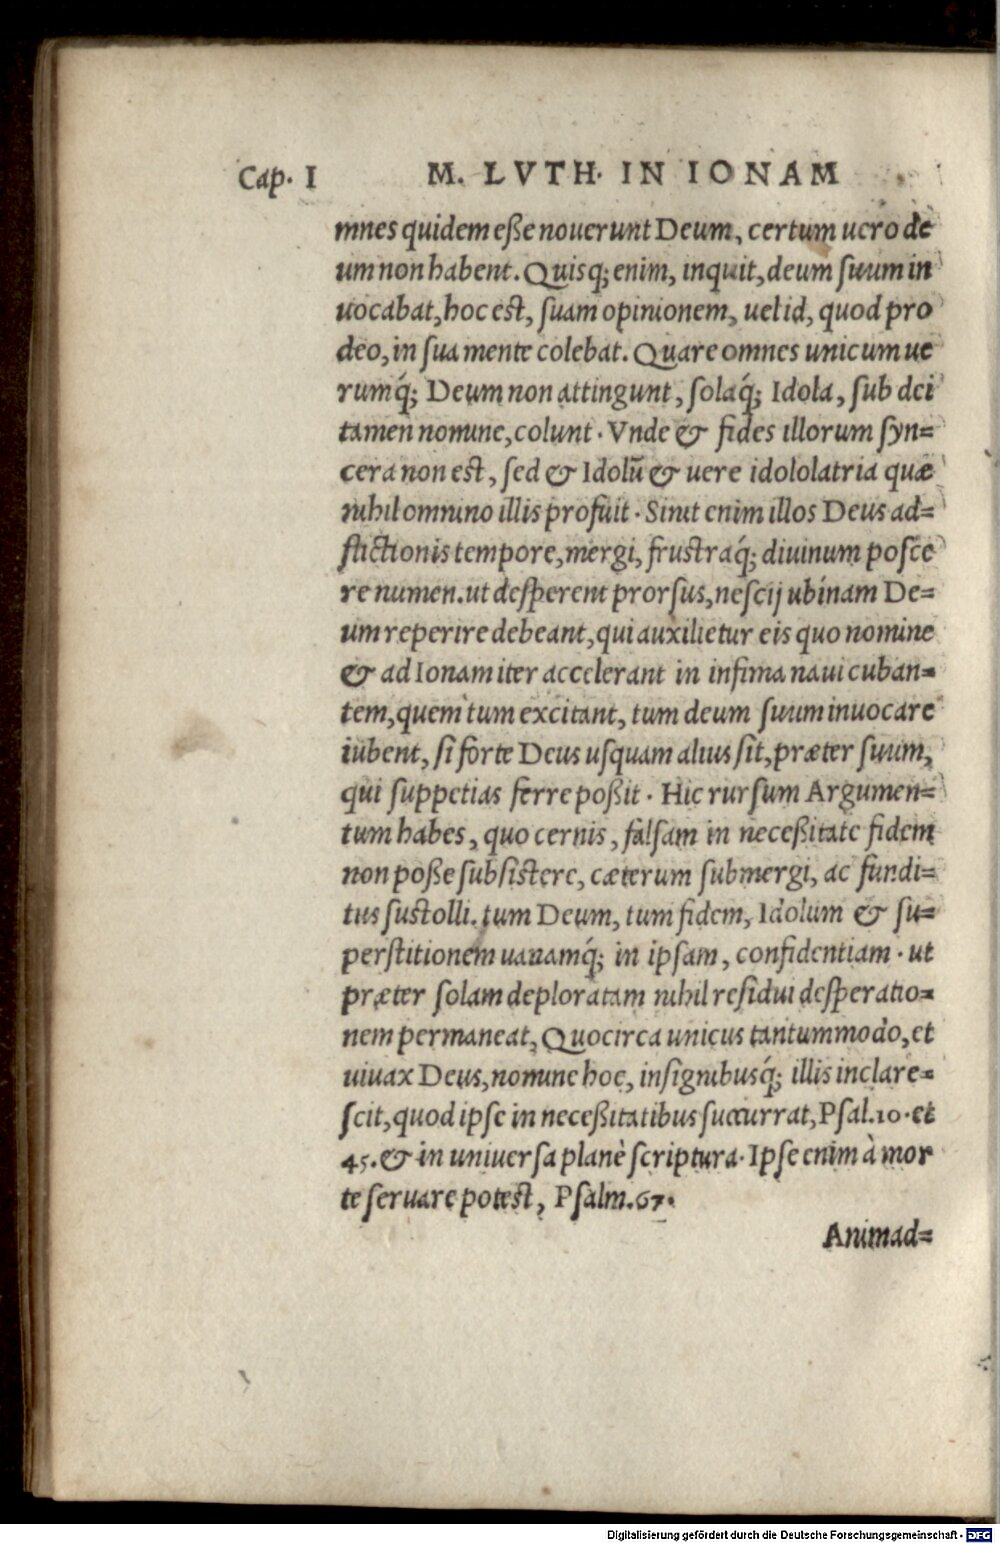 Cap. I M. LVTH. IN IONAM
mnes quidem eße nouerunt Deum, certum uero de
um non habent. Quisq; enim, inquit, deum suum in
uocabat, hoc est, suam opinionem, uel id, quod pro
deo, in sua mente colebat. Quare omnes unicum ue
rumq́; Deum non attingunt, solaq́; Idola, sub dei
tamen nomine, colunt. Vnde & fides illorum syn=
cera non est, sed & Idolū & uere idololatria quæ
nihil omnino illis profuit. Sinit enim illos Deus ad=
flictionis tempore, mergi, frustraq́; diuinum posce
re numen. ut desperent prorsus, nescij ubinam De=
um reperire debeant, qui auxilietur eis quo nomine
& ad Ionam iter accelerant in infima naui cuban=
tem, quem tum excitant, tum deum suum inuocare
iubent, si forte Deus usquam alius sit, præter suum,
qui suppetias ferre poßit. Hic rursum Argumen=
tum habes, quo cernis, falsam in neceßitate fidem
non poße subsistere, cæterum submergi, ac fundi=
tus sustolli. tum Deum, tum fidem, Idolum & su=
perstitionem uanamq́; in ipsam, confidentiam. ut
præter solam deploratam nihil residui desperatio=
nem permaneat, Quocirca unicus tantummodo, et
uiuax Deus, nomine hoc, insignibusq́; illis inclare=
scit, quod ipse in neceßitatibus succurrat, Psal. 10. et
45. & in uniuersa planè scriptura. Ipse enim à mor
te seruare potest, Psalm. 67.
Animad=
Digitalisierung gefördert durch die Deutsche Forschungsgemeinschaft - DFG